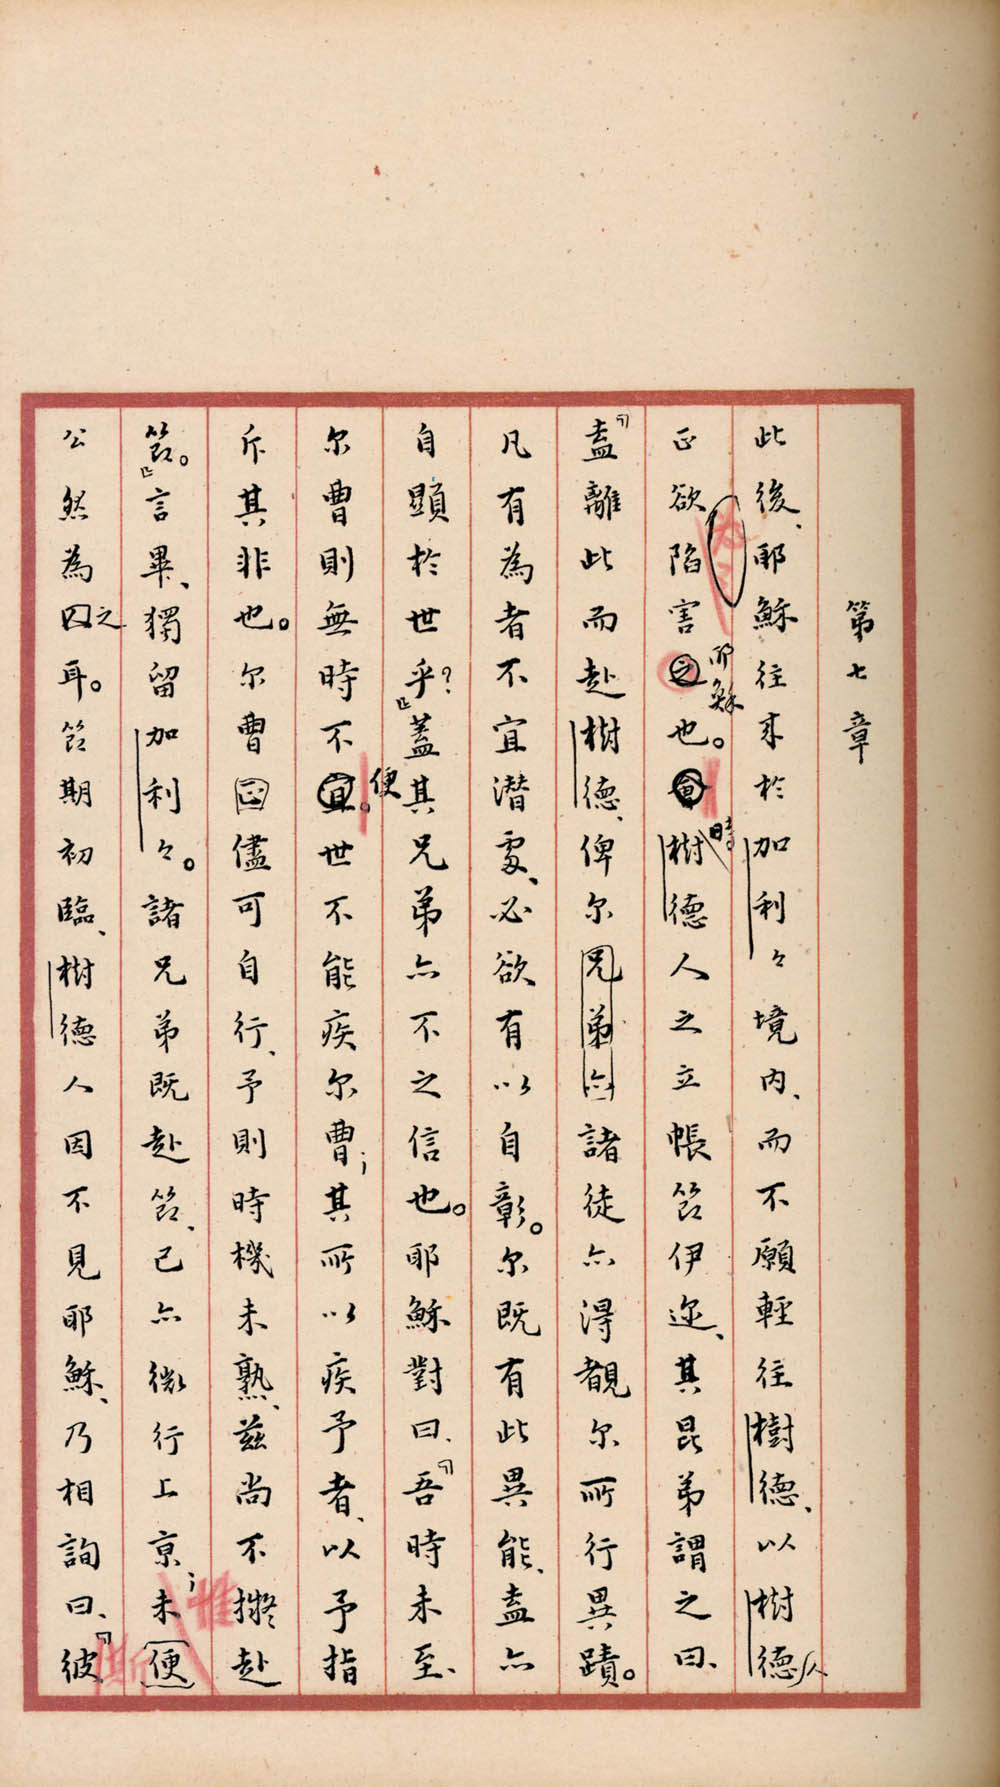 第七章
此後、耶穌往來於加利々境內、而不願輕往樹德、以樹德人
正欲陷害之耶穌也。時樹德人之立帳節伊邇、其昆弟謂之曰、
『盍離此而赴樹德、俾尔兄弟亦諸徒亦得覩尔所行異蹟。
凡有為者不宜潛處、必欲有以自彰。尔既有此異能、盍亦
自顯於世乎?』蓋其兄弟亦不之信也。耶穌對曰、『吾時未至、
尔曹則無時不宜便。世不能疾尔曹;其所以疾予者、以予指
斥其非也。尔曹正儘可自行、予則時機未熟、茲尚不擬赴
節。』言畢、獨留加利々。諸兄弟既赴節、己亦微行上京;未便惟
公然為之因耳。節期初臨、樹德人因不見耶穌、乃相詢曰、『彼